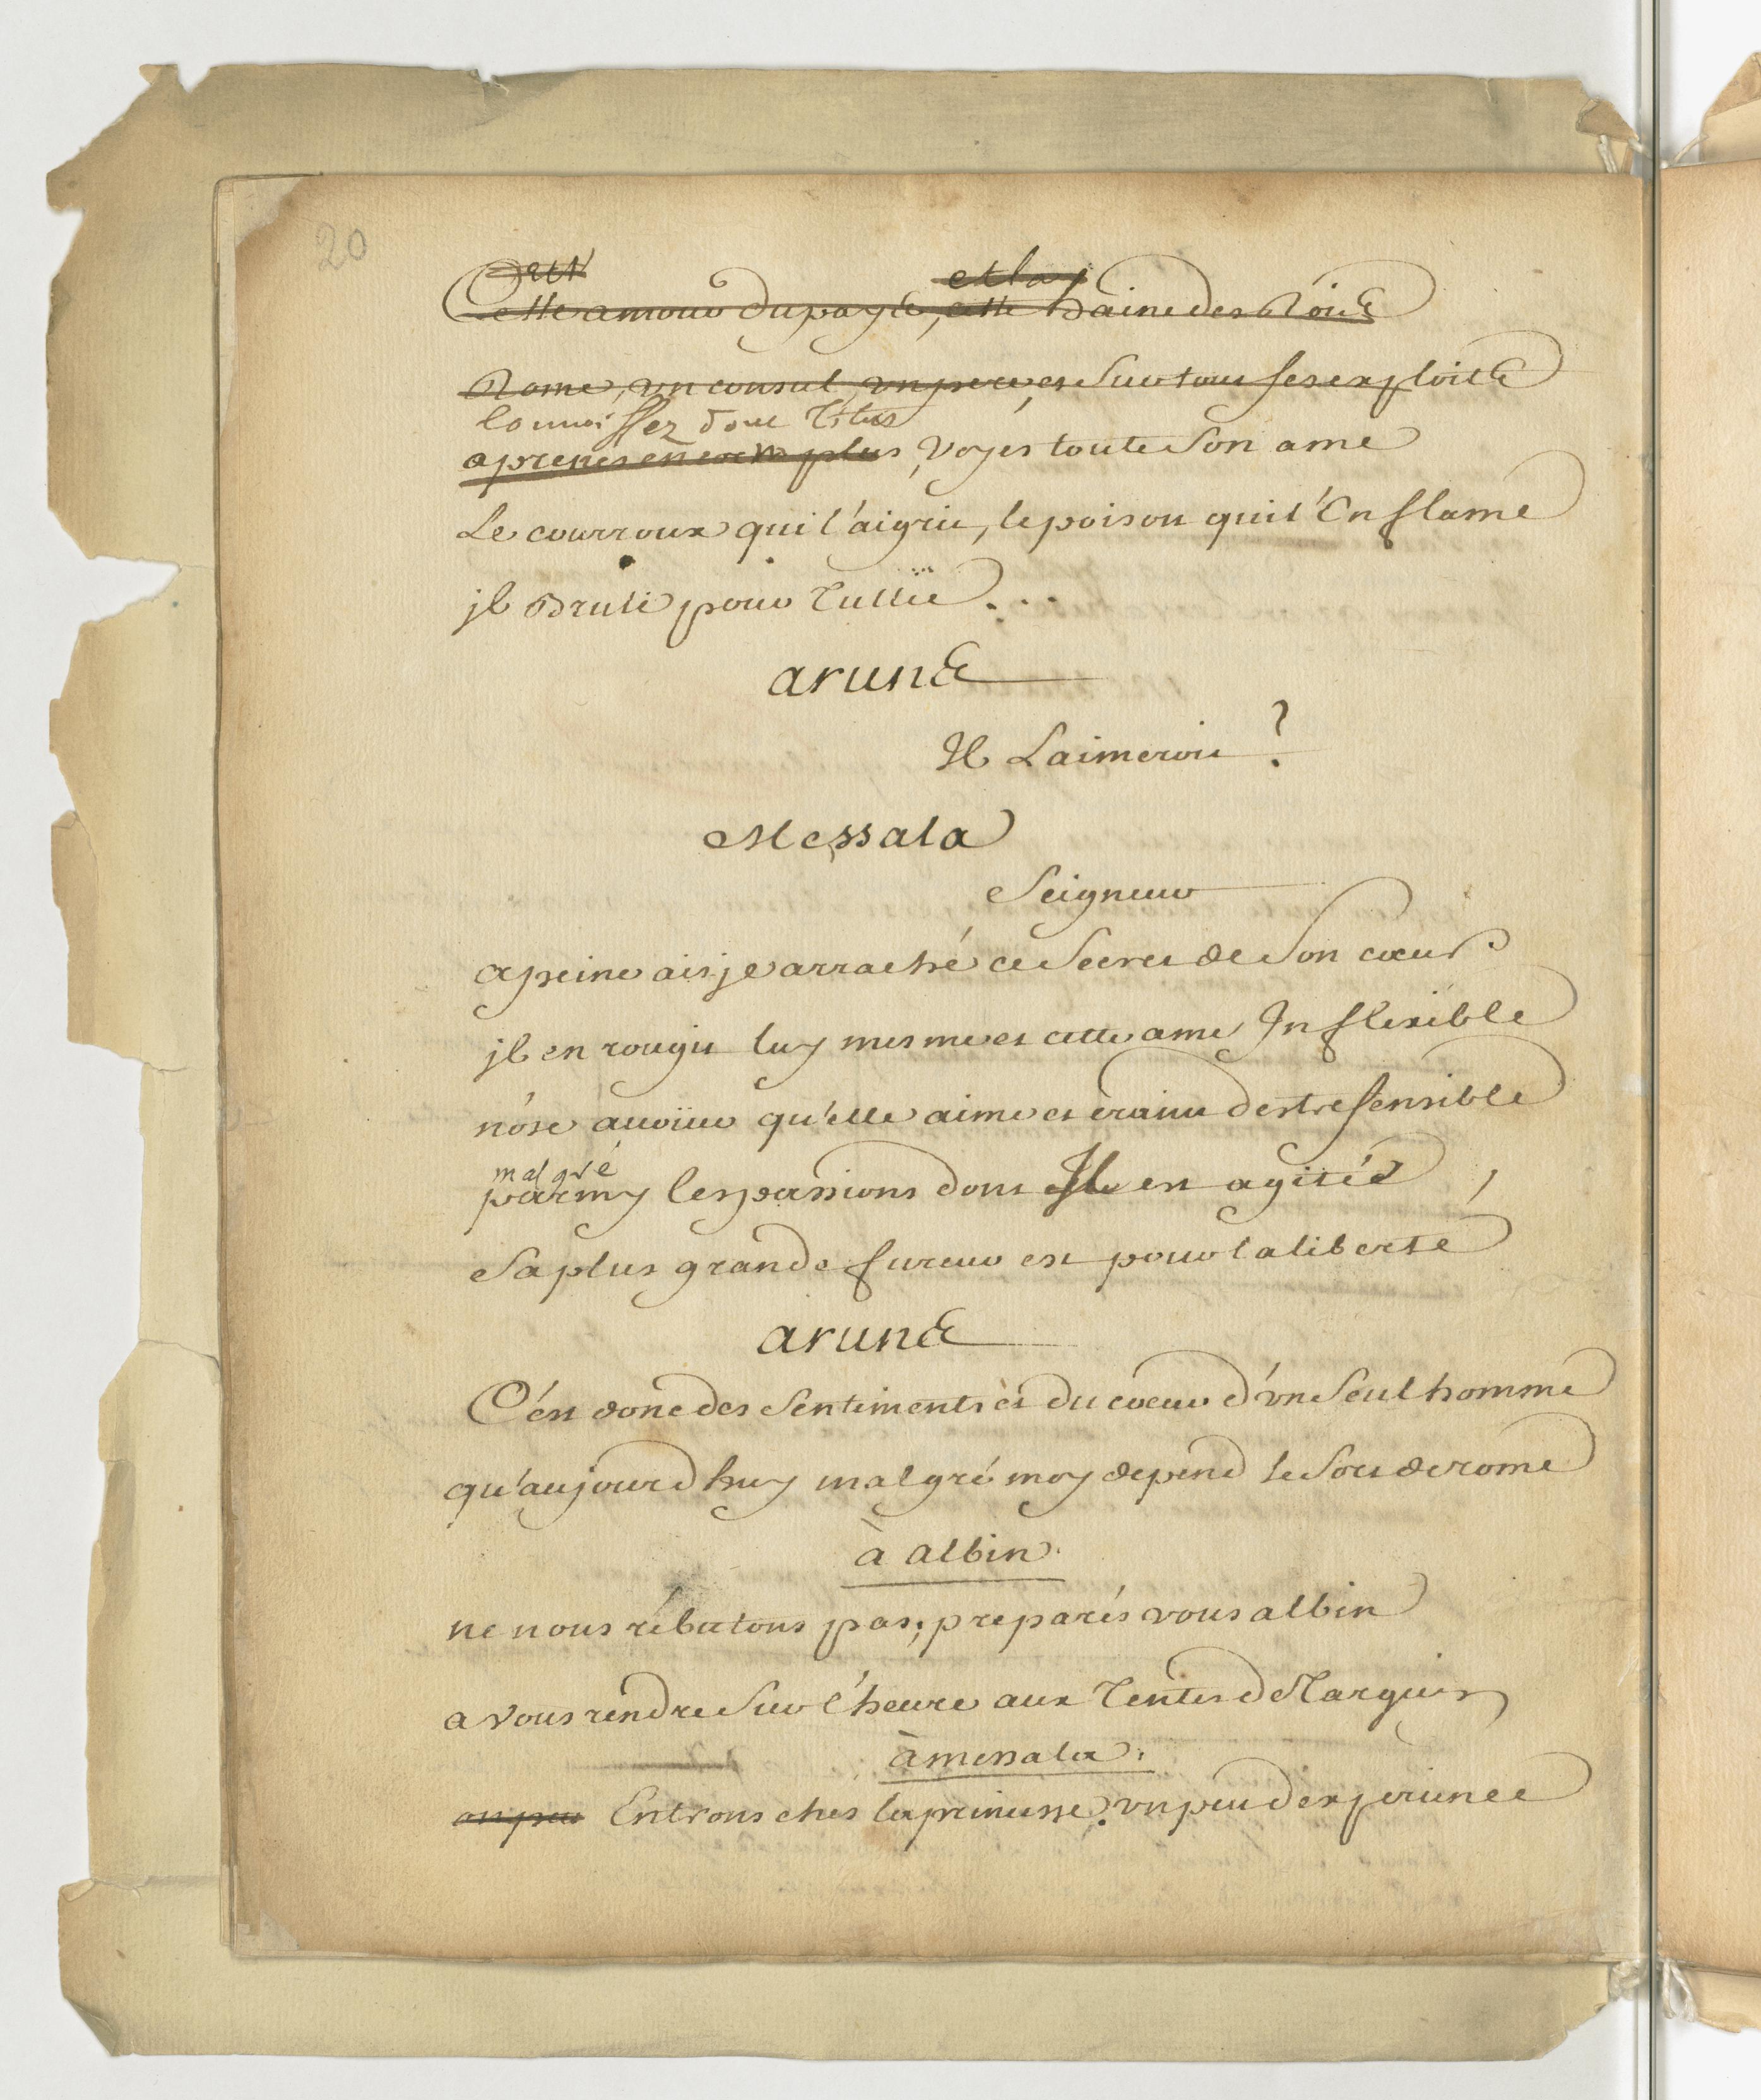 20
Cet et la
Cette amour du pays, cette haine des Rois
Rome, un consul, un pere, et Sur tous ses exploits
Connoissez donc Titus
aprenés en encor plus, Voyés toute Son ame
Le courroux qui l'aigrit, le poison qui l'Enflame
jl Brule pour Tullie...
aruns
Il Laimeroit ?
Messala
Seigneur
a peine ais je arraché ce Secret de Son cœur
jl en rougit luy mesme et cette ame Inflexible
n'ose avoüer qu'elle aime et craint d'estre sensible
malgré
parmy les passions dont Il est agité,
Sa plus grande fureur est pour la liberté
aruns
C'est donc des Sentiments et du coeur d'un Seul homme
qu'aujourd huy malgré moy depend le Sort de rome
à albin.
ne nous rébutons pas; preparés vous albin
a vous rendre Sur l'heure aux Tentes de Tarquin
à messala.
un peu Entrons ches la princesse. un peu d'experience